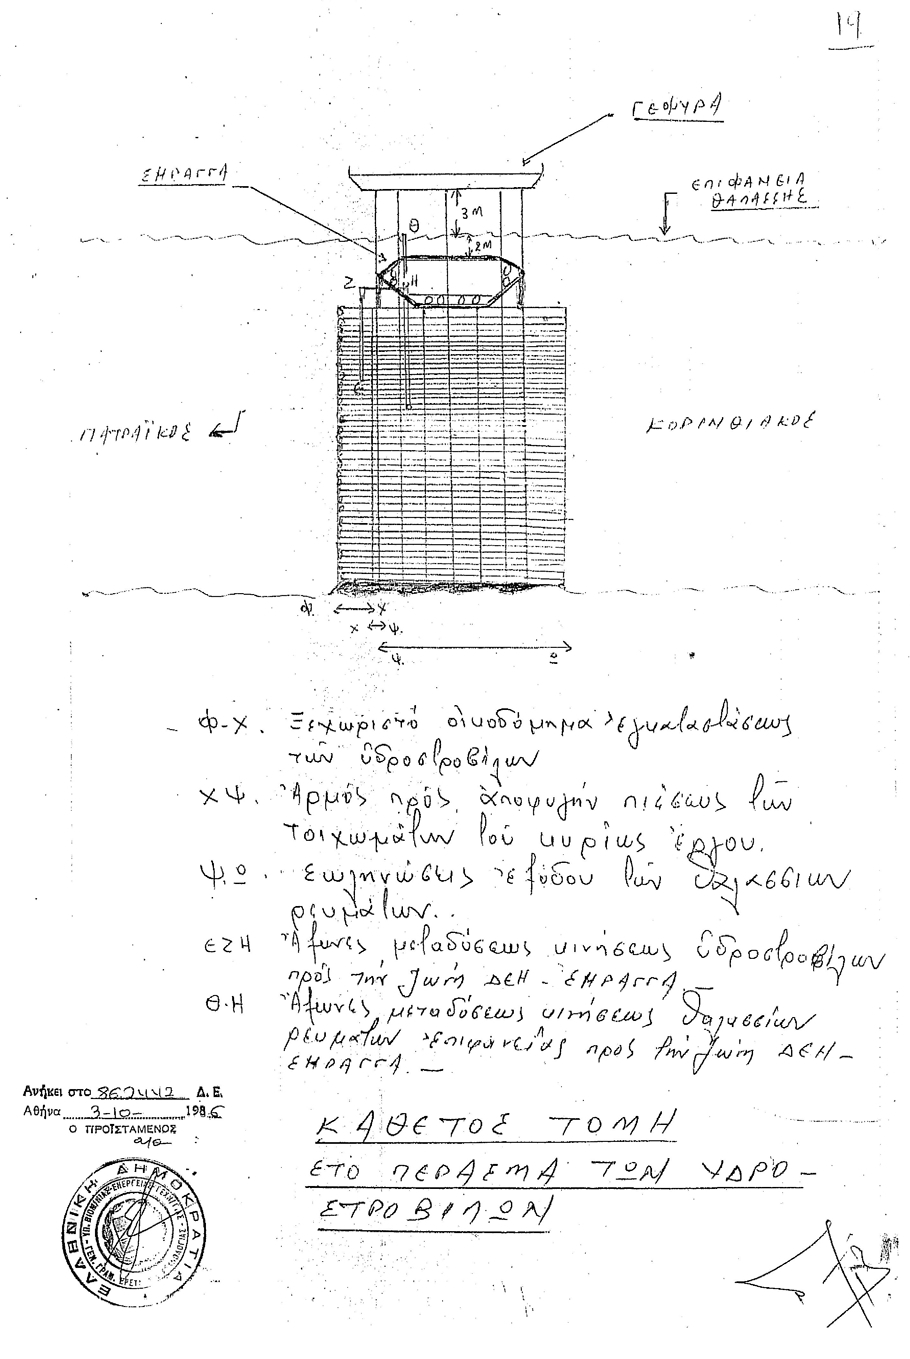 14
ΓΕΦΥΡΑ
ΣΗΡΑΓΓΑ
ΕΠΙΦΑΝΕΙΑ
ΘΑΛΑΣΣΗΣ
3 Μ
Θ
2Μ
Ζ
Η
Ε
ΠΑΤΡΑΪΚΟΣ
ΚΟΡΙΝΘΙΑΚΟΣ
Φ. Χ
Χ Ψ.
Ψ. Ω
Φ-Χ. Ξεχωριστό οἰκοδόμημα ἐγκαταστάσεως
τῶν ὑδροστροβίλων
ΧΨ. Ἁρμός πρός ἀποφυγήν πιέσεως τῶν
τοιχωμάτων τοῦ κυρίως ἔργου.
Ψ.Ω. Σωληνώσεις ἐξόδου τῶν θαλασσίων
ρευμάτων..
ΕΖΗ Ἄξωνες μεταδόσεως κινήσεως ὑδροστροβίλων
πρός τήν ζωήν ΔΕΗ - ΣΗΡΑΓΓΑ.—
Θ-Η Ἄξωνες μεταδόσεως κινήσεως θαλασσίων
ρευμάτων ἐπιφανείας πρός τήν ζωήν ΔΕΗ-
ΣΗΡΑΓΓΑ.—
Ανήκει στο 862442 Δ.Ε.
Αθήνα 3-10- 1986
Ο ΠΡΟΪΣΤΑΜΕΝΟΣ
ΕΛΛΗΝΙΚΗ ΔΗΜΟΚΡΑΤΙΑ
ΚΑΘΕΤΟΣ ΤΟΜΗ
ΣΤΟ ΠΕΡΑΣΜΑ ΤΩΝ ΥΔΡΟ-
ΣΤΡΟΒΙΛΩΝ